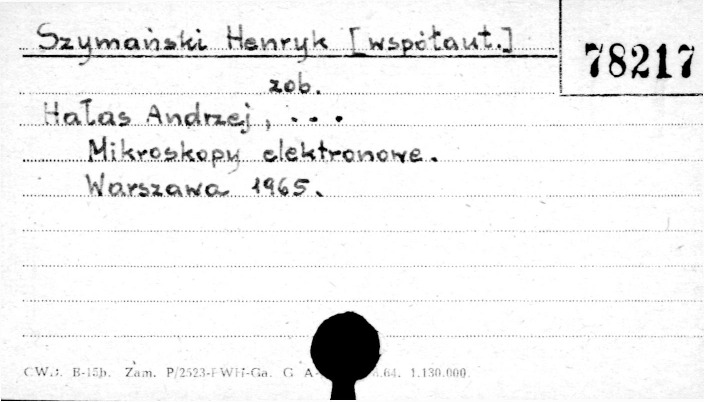 Szymański Henryk [współaut.]
78217
zob.
Hałas Andrzej, ...
Mikroskopy elektronowe.
Warszawa 1965.
B-15b. Zam. P/2523-PWH-Ga. G A- .64. 1.130.000.